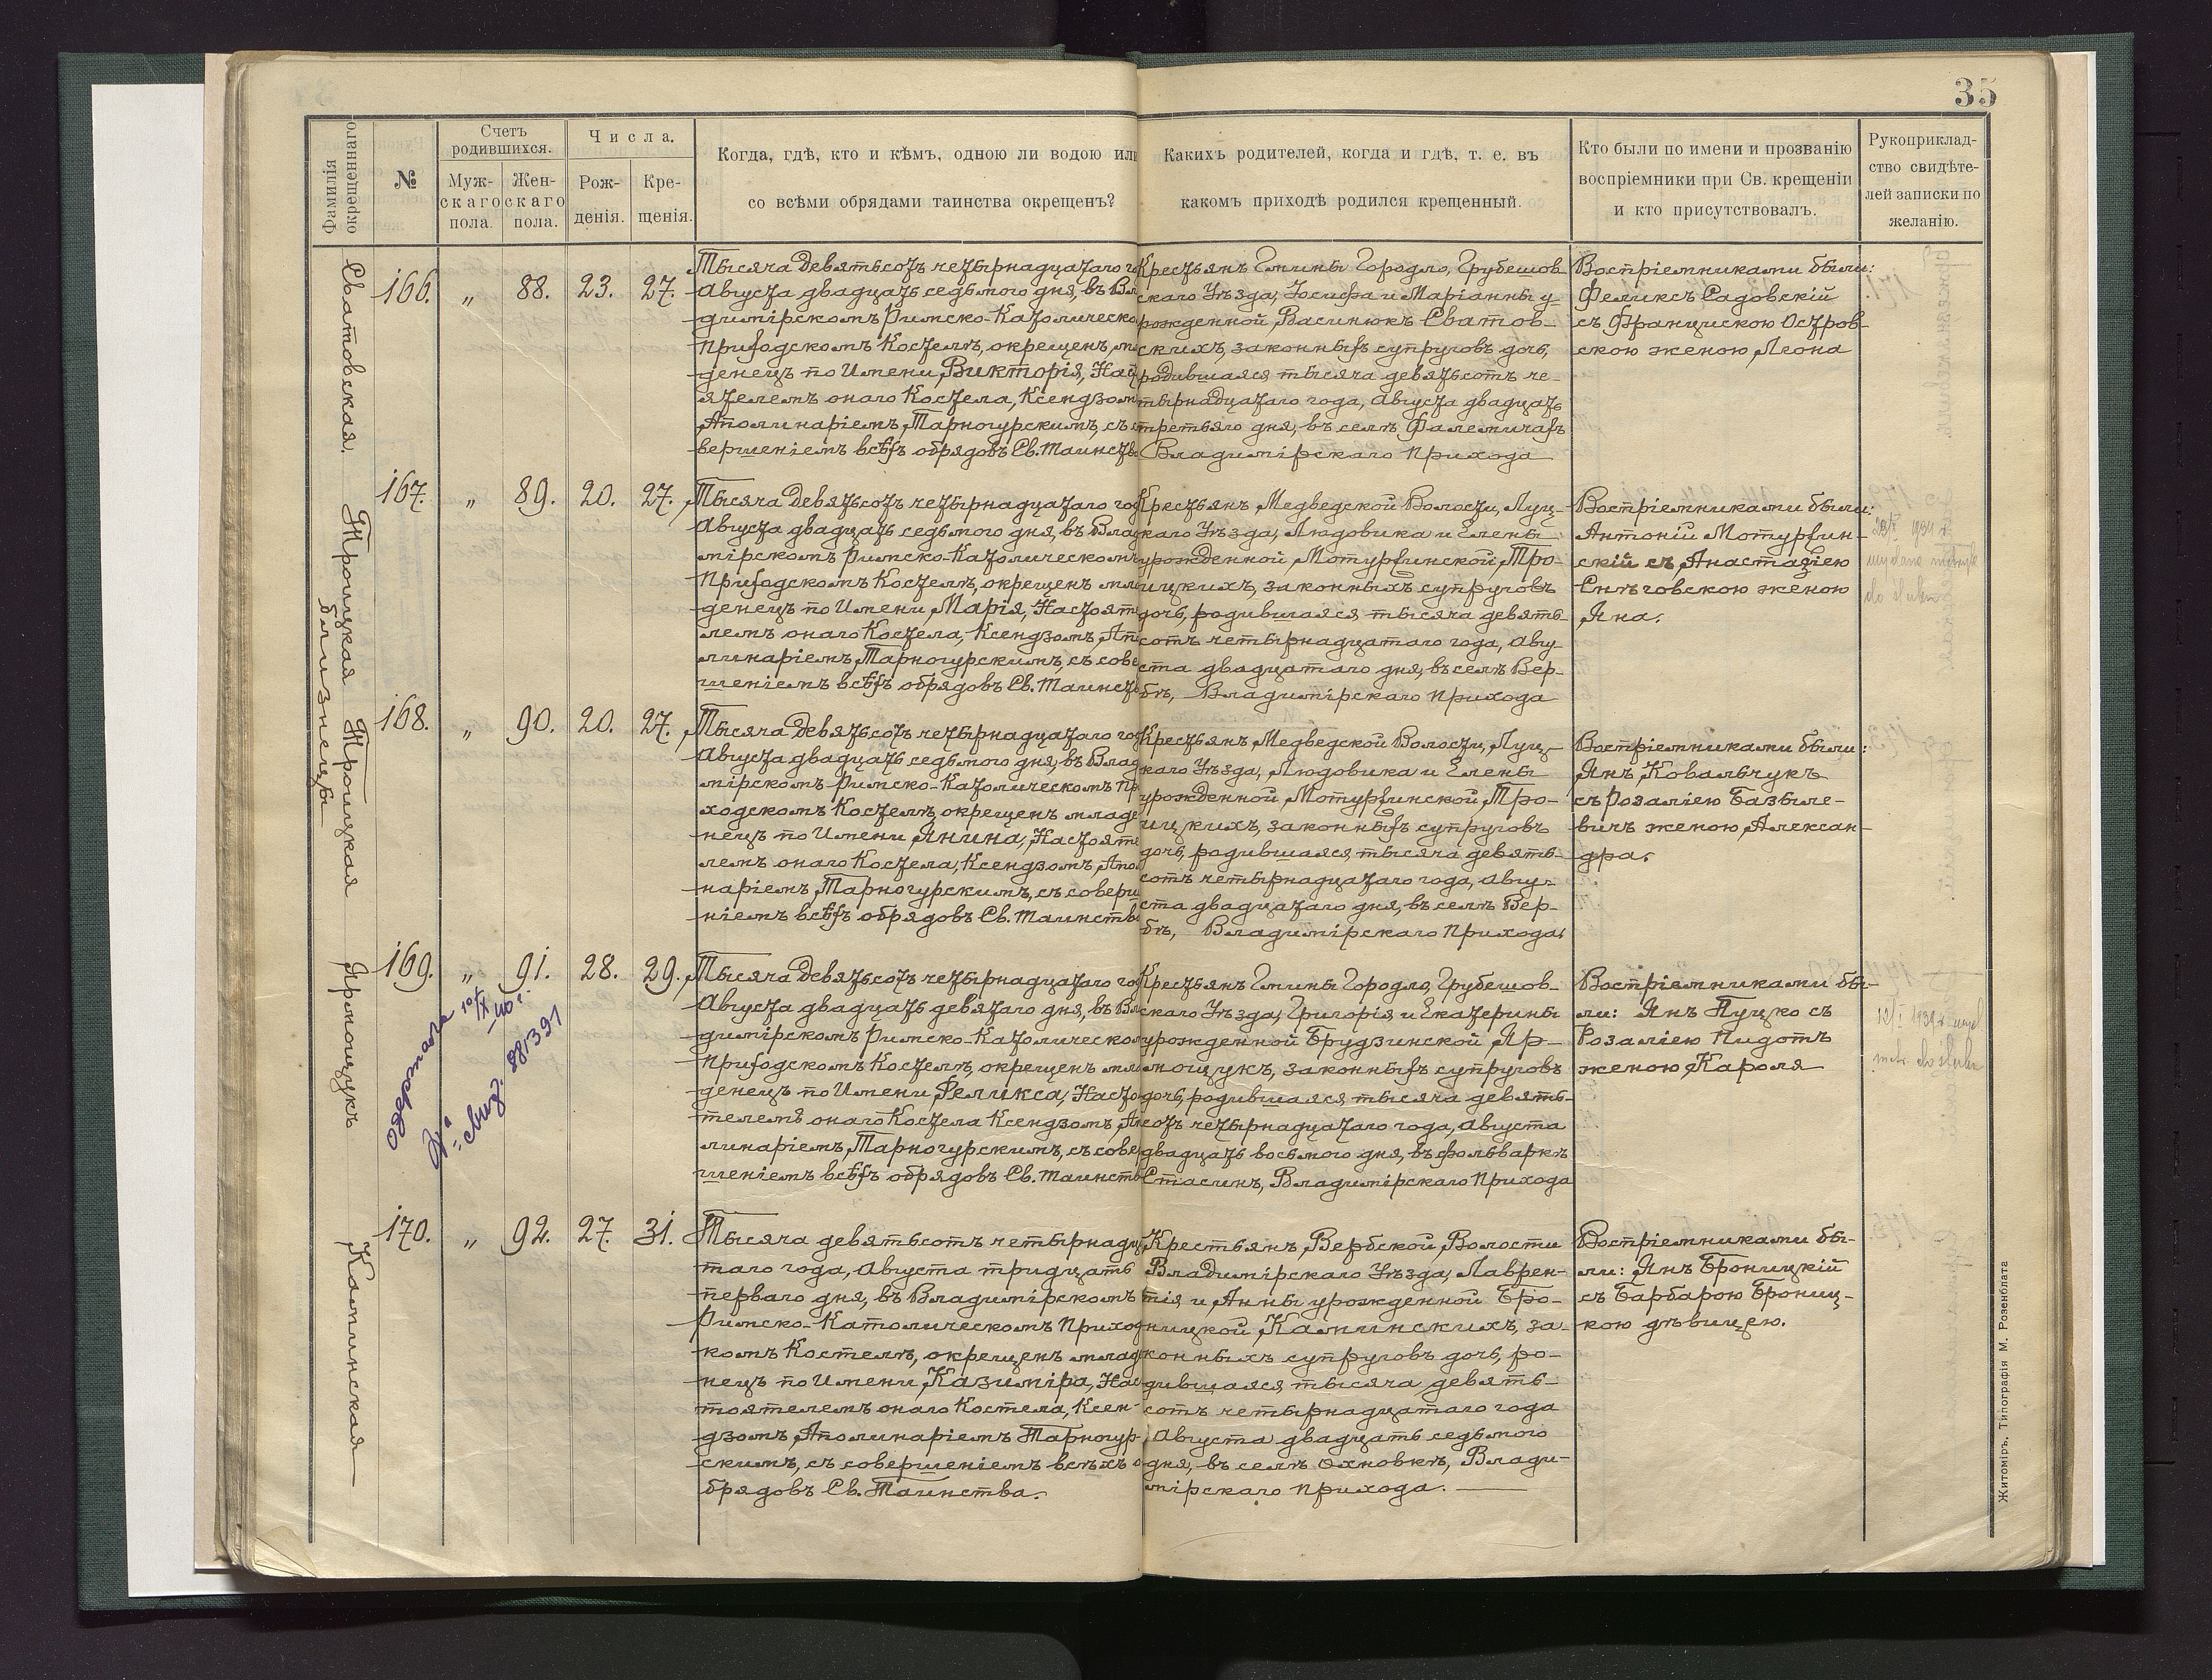 35
Фамилія окрещеннаго
№
Счетъ родившихся.
Мужскаго пола.
Женскаго пола.
Числа.
Рожденія.
Крещенія.
Когда, гдѣ, кто и кѣмъ, одною ли водою или
со всѣми обрядами таинства окрещенъ?
Какихъ родителей, когда и гдѣ, т. е. въ
какомъ приходѣ родился крещенный.
Кто были по имени и прозванію
воспріемники при Св. крещеніи
и кто присутствовалъ.
Рукоприклад-
ство свидѣте-
лей записки по
желанію.
Сватовская.
166. „ 88. 23. 27.
Тысяча девятьсотъ четырнадцатаго го
Августа двадцать седьмого дня, въ Вла
димірскомъ Римско-Католическо
Приходскомъ Костелѣ, окрещенъ, м
денецъ по Имени Викторія, Нас
ятелемъ онаго Костела, Ксендзом
Аполинаріемъ Тарногурскимъ, съ
вершеніемъ всѣхъ обрядовъ Св. Таинств
Крестьянъ Гмины Городло, Грубешов-
скаго Уѣзда, Іосифа и Маріанны у-
рожденной Васинюкъ Сватов-
скихъ, законныхъ супруговъ дочь,
родившаяся тысяча девятьсотъ че-
тырнадцатаго года, Августа двадцать
третьяго дня, въ селѣ Фалемичахъ
Владимірскаго Прихода
Воспріемниками были:
Феликсъ Садовскій
съ Францискою Остров-
скою женою Леона
Троицкая
близнецы
167. „ 89. 20. 27.
Тысяча девятьсотъ четырнадцатаго год
Августа двадцать седьмого дня, въ Влад
мірскомъ Римско-Католическомъ
Приходскомъ Костелѣ, окрещенъ мла
денецъ по Имени Марія, Настояте
лемъ онаго Костела, Ксендзомъ, Апо
линаріемъ Тарногурскимъ, съ сове
шеніемъ всѣхъ обрядовъ Св. Таинств
Крестьянъ Медведской Волости, Луц-
каго Уѣзда, Людовика и Елены
урожденной Мотурхинской Тро-
ицкихъ, законныхъ супруговъ
дочь, родившаяся тысяча девять-
сотъ четырнадцатаго года, Авгу-
ста двадцатаго дня, въ селѣ Вер-
бѣ, Владимірскаго Прихода
Воспріемниками были:
Антоній Мотурхин-
скій съ Анастазіею
Снѣговскою женою
Яна.
Троицкая
168. „ 90. 20. 27.
Тысяча девятьсотъ четырнадцатаго год
Августа двадцать седьмого дня, въ Влад
мірскомъ Римско-Католическомъ Пр
ходскомъ Костелѣ, окрещенъ младе
нецъ по Имени Янина, Настояте
лемъ онаго Костела, Ксендзомъ, Апо
наріемъ Тарногурскимъ, съ соверш
ніемъ всѣхъ обрядовъ Св. Таинства
Крестьянъ Медведской Волости, Луц-
каго Уѣзда, Людовика и Елены
урожденной Мотурхинской Тро-
ицкихъ, законныхъ супруговъ
дочь, родившаяся тысяча девять-
сотъ четырнадцатаго года, Авгу-
ста двадцатаго дня, въ селѣ Вер-
бѣ, Владимірскаго Прихода.
Воспріемниками были:
Янъ Ковальчукъ
съ Розаліею Базыле-
вичъ женою Алексан-
дра.
Ярмощукъ
169. „ 91. 28. 29.
одержала 10/IX 40 г.
свид. 881391
Тысяча девятьсотъ четырнадцатаго го
Августа двадцать девятаго дня, въ Вла
димірскомъ Римско-Католическом
Приходскомъ Костелѣ, окрещенъ мла
денецъ по Имени Феликса, Насто
телемъ онаго Костела Ксендзомъ, Ап
линаріемъ Тарногурскимъ, съ сове
шеніемъ всѣхъ обрядовъ Св. Таинств
Крестьянъ Гмины Городло, Грубешов-
скаго Уѣзда, Григорія и Екатерины
урожденной Брудзинской Яр-
мощукъ, законныхъ супруговъ
дочь, родившаяся тысяча девять-
сотъ четырнадцатаго года, Августа
двадцать восьмого дня, въ фольваркѣ
Стасинъ, Владимірскаго Прихода
Воспріемниками бы-
ли: Янъ Пуцко съ
Розаліею Пидотъ
женою Кароля
Каминская
170. „ 92. 27. 31.
Тысяча девятьсотъ четырнадц
таго года, Августа тридцать
перваго дня, въ Владимірскомъ
Римско-Католическомъ Приход
комъ Костелѣ, окрещенъ млад
нецъ по Имени Казиміра, Нас
тоятелемъ онаго Костела, Ксен-
дзомъ Аполинаріемъ Тарногур-
скимъ, съ совершеніемъ всѣхъ о
брядовъ Св. Таинства.
Крестьянъ Вербской Волости
Владимірскаго Уѣзда, Лаврен-
тія и Анны урожденной Бро-
ницкой Каминскихъ, за-
конныхъ супруговъ дочь, ро-
дившаяся тысяча девять-
сотъ четырнадцатаго года
Августа двадцать седьмого
дня, въ селѣ Охновкѣ, Влади-
мірскаго прихода.
Воспріемниками бы-
ли: Янъ Броницкій
съ Барбарою Брониц-
кою дѣвицею.
Житоміръ, Типографія М. Розенблата